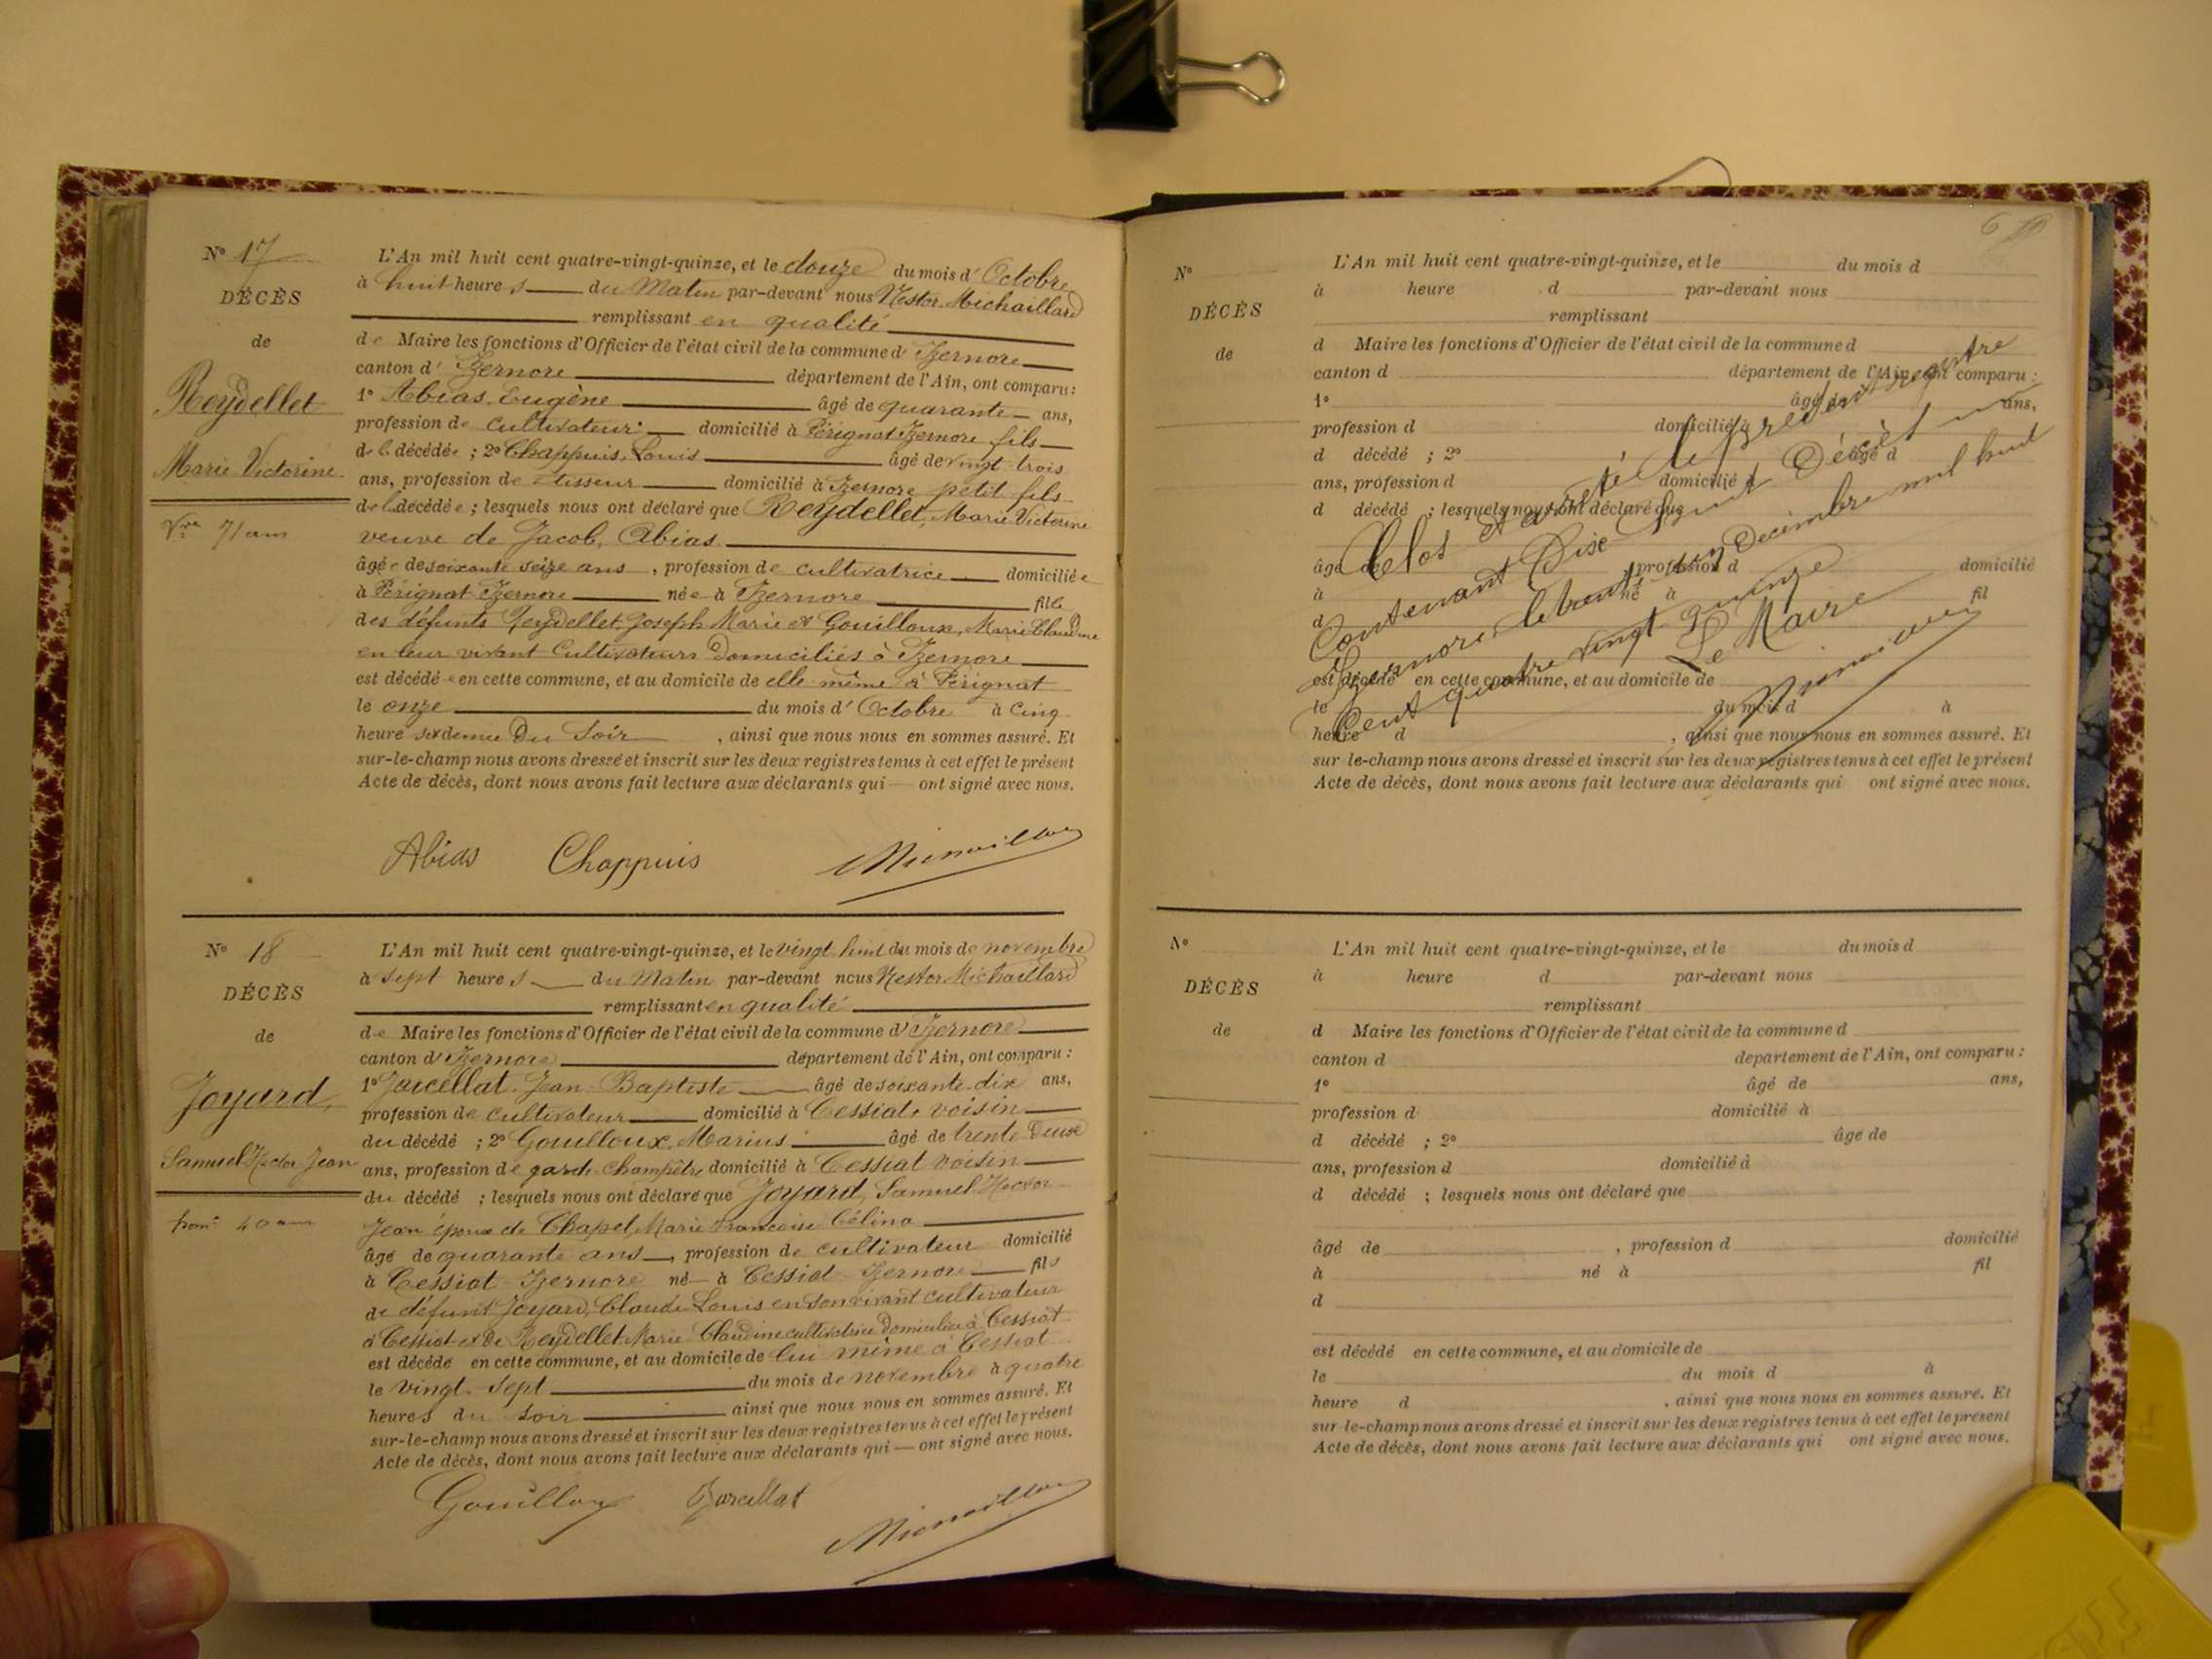 N° 17
DÉCÈS
de
Reydellet
Marie Victorine
Vve 71 ans
L'An mil huit cent quatre-vingt-quinze, et le douze du mois d'Octobre
à huit heures du Matin par-devant nous Nestor Michaillard
remplissant en qualité
de Maire les fonctions d'Officier de l'état civil de la commune d'Izernore
canton d'Izernore département de l'Ain, ont comparu :
1° Abias Eugène âgé de quarante ans,
profession de cultivateur domicilié à Pérignat Izernore fils
de la décédée ; 2° Chappuis, Louis âgé de vingt trois
ans, profession de tisseur domicilié à Izernore petit fils
de la décédée ; lesquels nous ont déclaré que Reydellet, Marie Victorine
veuve de Jacob, Abias
âgée de soixante seize ans, profession de cultivatrice domiciliée
à Pérignat Izernore née à Izernore fille
des défunts Reydellet, Joseph Marie et Gouilloux, Marie Claudine
en leur vivant Cultivateurs Domiciliés à Izernore
est décédée en cette commune, et au domicile de elle même à Pérignat
le onze du mois d'Octobre à Cinq
heures et demie Du Soir, ainsi que nous nous en sommes assuré. Et
sur-le-champ nous avons dressé et inscrit sur les deux registres tenus à cet effet le présent
Acte de décès, dont nous avons fait lecture aux déclarants qui ont signé avec nous.
Abias Chappuis
N° 18
DÉCÈS
de
Joyard,
Samuel Hector Jean
hom. 40 ans
L'An mil huit cent quatre-vingt-quinze, et le vingt huit du mois de novembre
à sept heures du Matin par-devant nous Nestor Michaillard
remplissant en qualité
de Maire les fonctions d'Officier de l'état civil de la commune d'Izernore
canton d'Izernore département de l'Ain, ont comparu :
1° Jarcellat Jean-Baptiste âgé de soixante-dix ans,
profession de cultivateur domicilié à Cessiat voisin
du décédé ; 2° Gouilloux, Marius âgé de trente Deux
ans, profession de garde-champêtre domicilié à Cessiat voisin
du décédé ; lesquels nous ont déclaré que Joyard, Samuel Hector
Jean époux de Chapel, Marie Françoise Célina
âgé de quarante ans, profession de cultivateur domicilié
à Cessiat-Izernore né à Cessiat-Izernore fils
de défunt Joyard, Claude Louis en son vivant cultivateur
à Cessiat et De Reydellet Marie Claudine cultivatrice Domiciliée à Cessiat
est décédé en cette commune, et au domicile de lui même à Cessiat
le vingt-sept du mois de novembre à quatre
heures du soir ainsi que nous nous en sommes assuré. Et
sur-le-champ nous avons dressé et inscrit sur les deux registres tenus à cet effet le présent
Acte de décès, dont nous avons fait lecture aux déclarants qui ont signé avec nous.
Gouilloux Jarcellat
6
N°
DÉCÈS
de
L'An mil huit cent quatre-vingt-quinze, et le du mois d
à heure d par-devant nous
remplissant
d Maire les fonctions d'Officier de l'état civil de la commune d
canton d département de l'Ain, ont comparu :
1° âgé de ans,
profession d domicilié à
d décédé ; 2° âgé d
ans, profession d domicilié à
d décédé ; lesquels nous ont déclaré que
âgé de , profession d domicilié
à né à fil
d
est décédé en cette commune, et au domicile de
le du mois d à
heure d , ainsi que nous nous en sommes assuré. Et
sur-le-champ nous avons dressé et inscrit sur les deux registres tenus à cet effet le présent
Acte de décès, dont nous avons fait lecture aux déclarants qui ont signé avec nous.
Clos et arrêté le présent registre
Contenant Dix-huit Décès
Izernore le trente-un Décembre mil huit
Cent quatre vingt-quinze
Le Maire
N°
DÉCÈS
de
L'An mil huit cent quatre-vingt-quinze, et le du mois d
à heure d par-devant nous
remplissant
d Maire les fonctions d'Officier de l'état civil de la commune d
canton d département de l'Ain, ont comparu :
1° âgé de ans,
profession d domicilié à
d décédé ; 2° âge de
ans, profession d domicilié à
d décédé ; lesquels nous ont déclaré que
âgé de , profession d domicilié
à né à fil
d
est décédé en cette commune, et au domicile de
le du mois d à
heure d , ainsi que nous nous en sommes assuré. Et
sur-le-champ nous avons dressé et inscrit sur les deux registres tenus à cet effet le présent
Acte de décès, dont nous avons fait lecture aux déclarants qui ont signé avec nous.